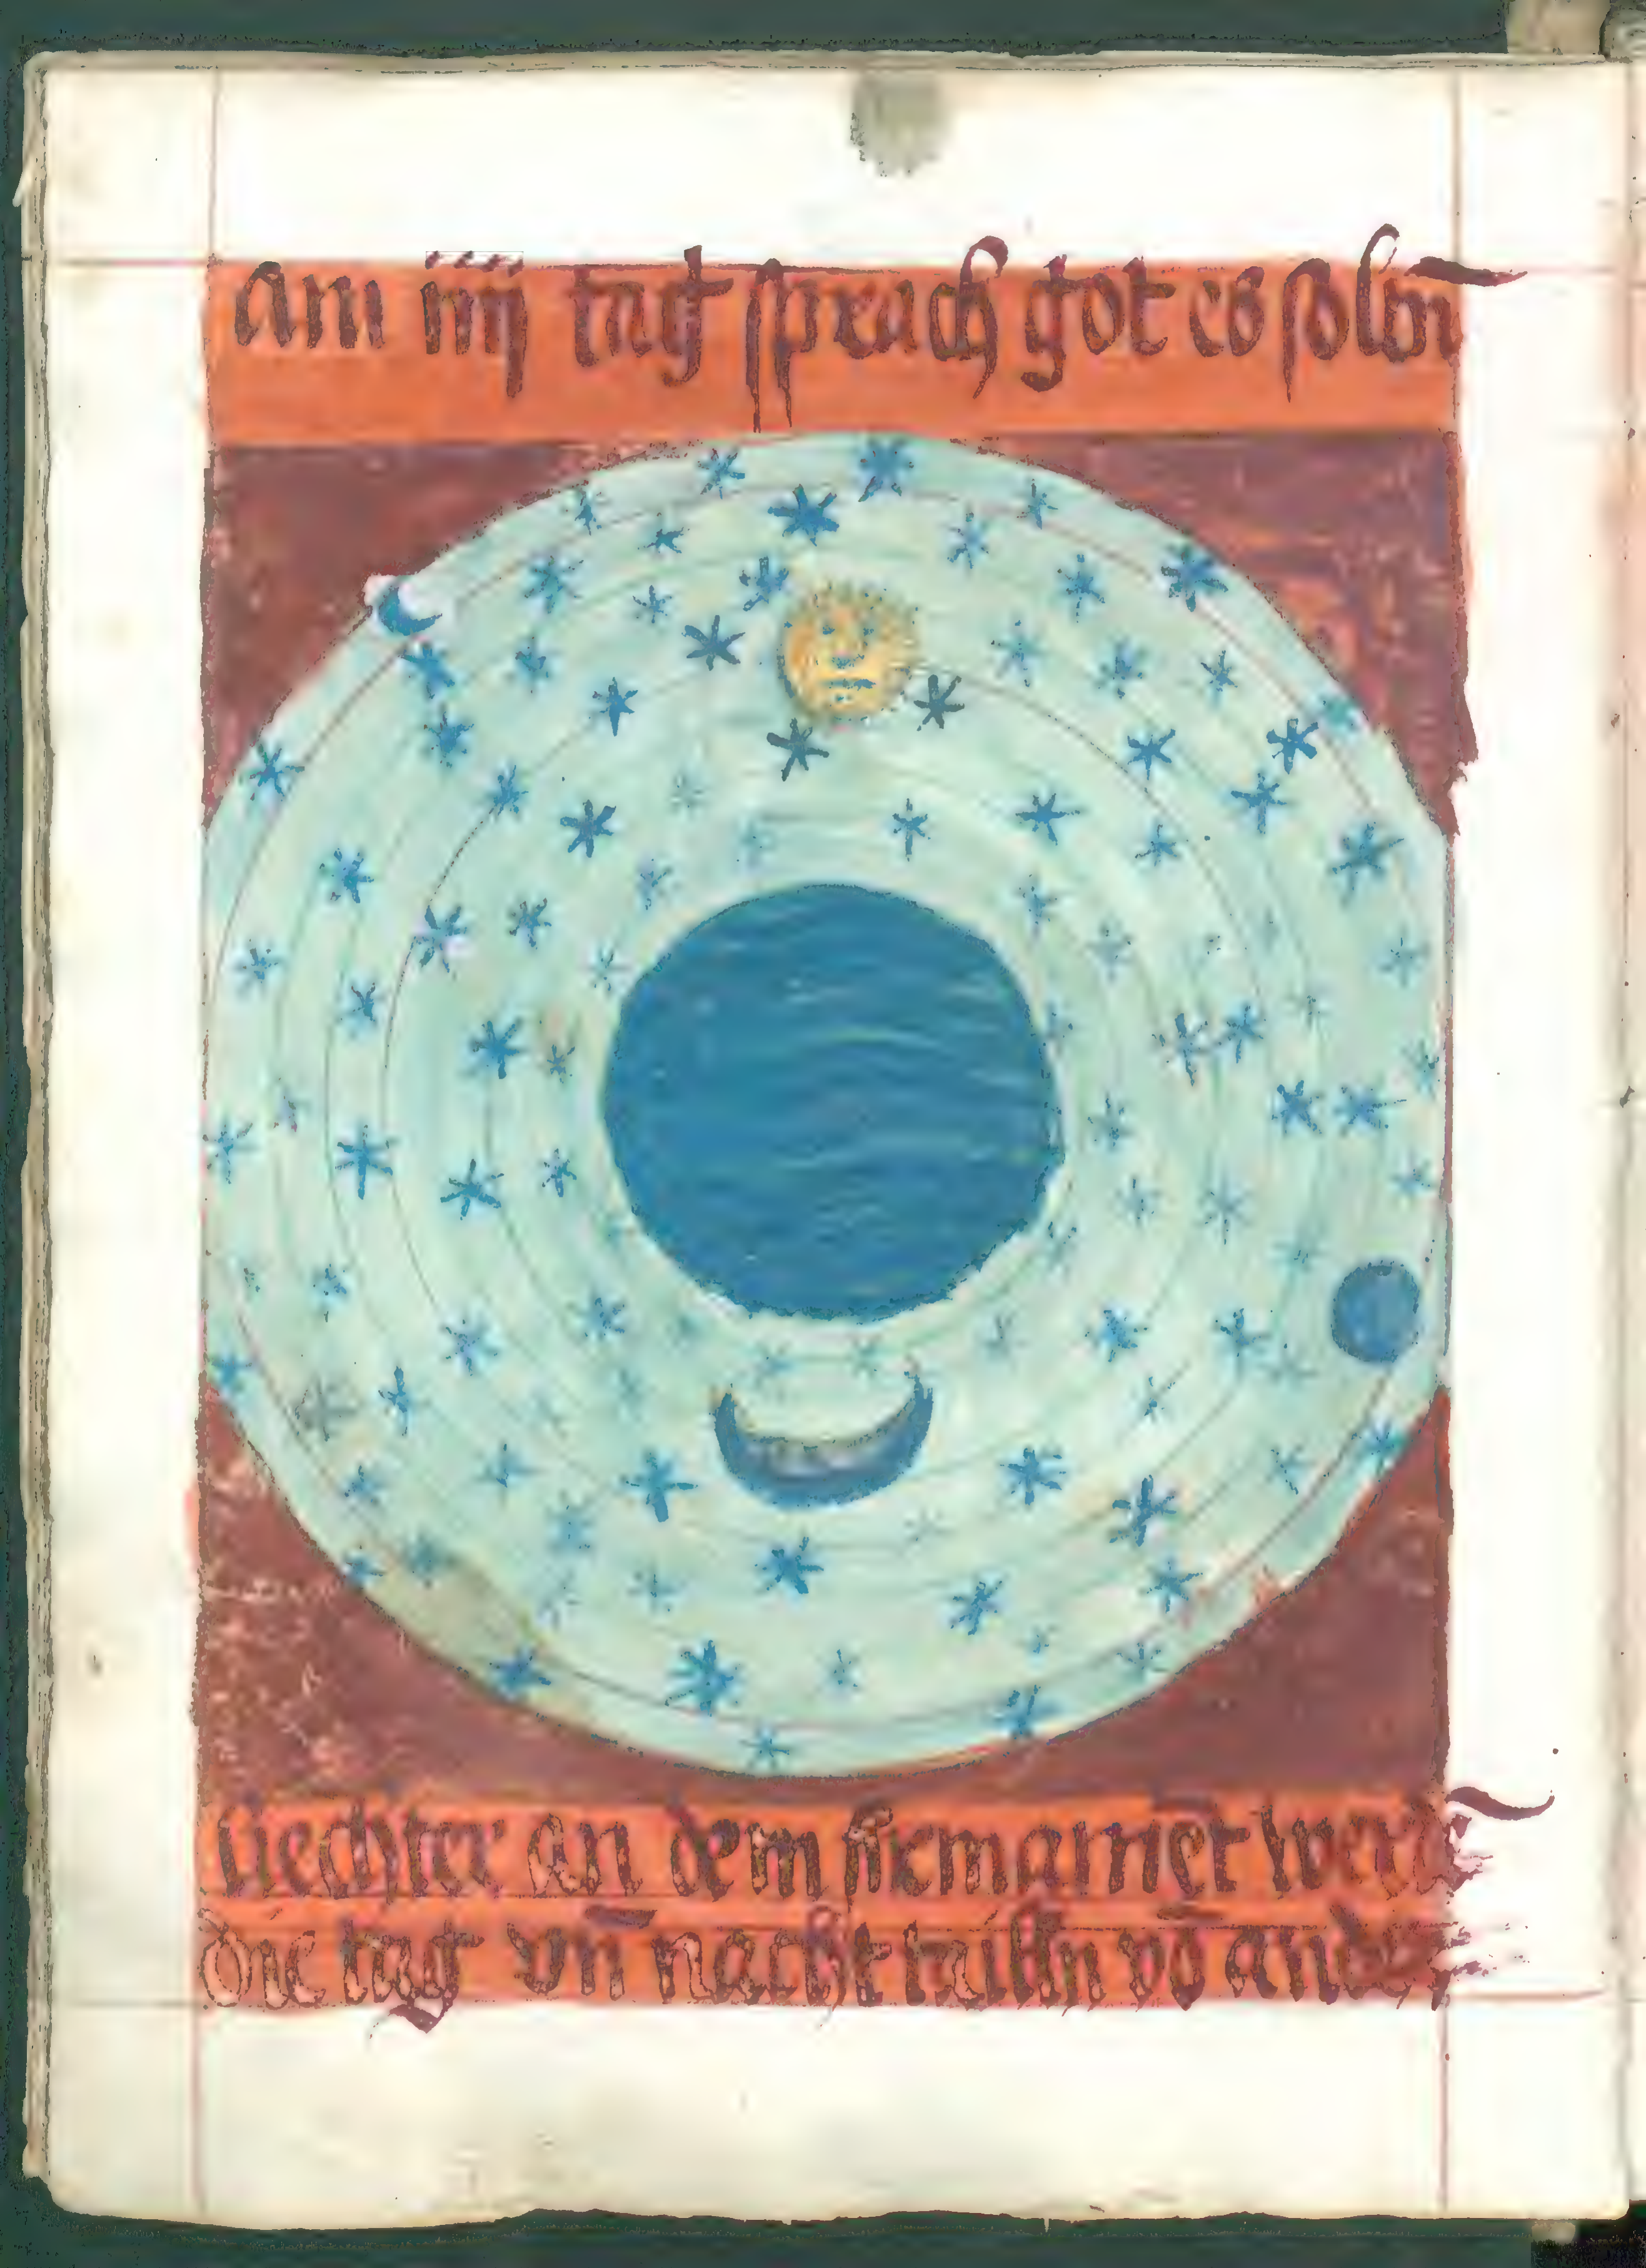 Am iiij tag sprach got es solln̄
Liechter an dem firmamet werdē
die tag vn̄ nacht taillñ vō ander